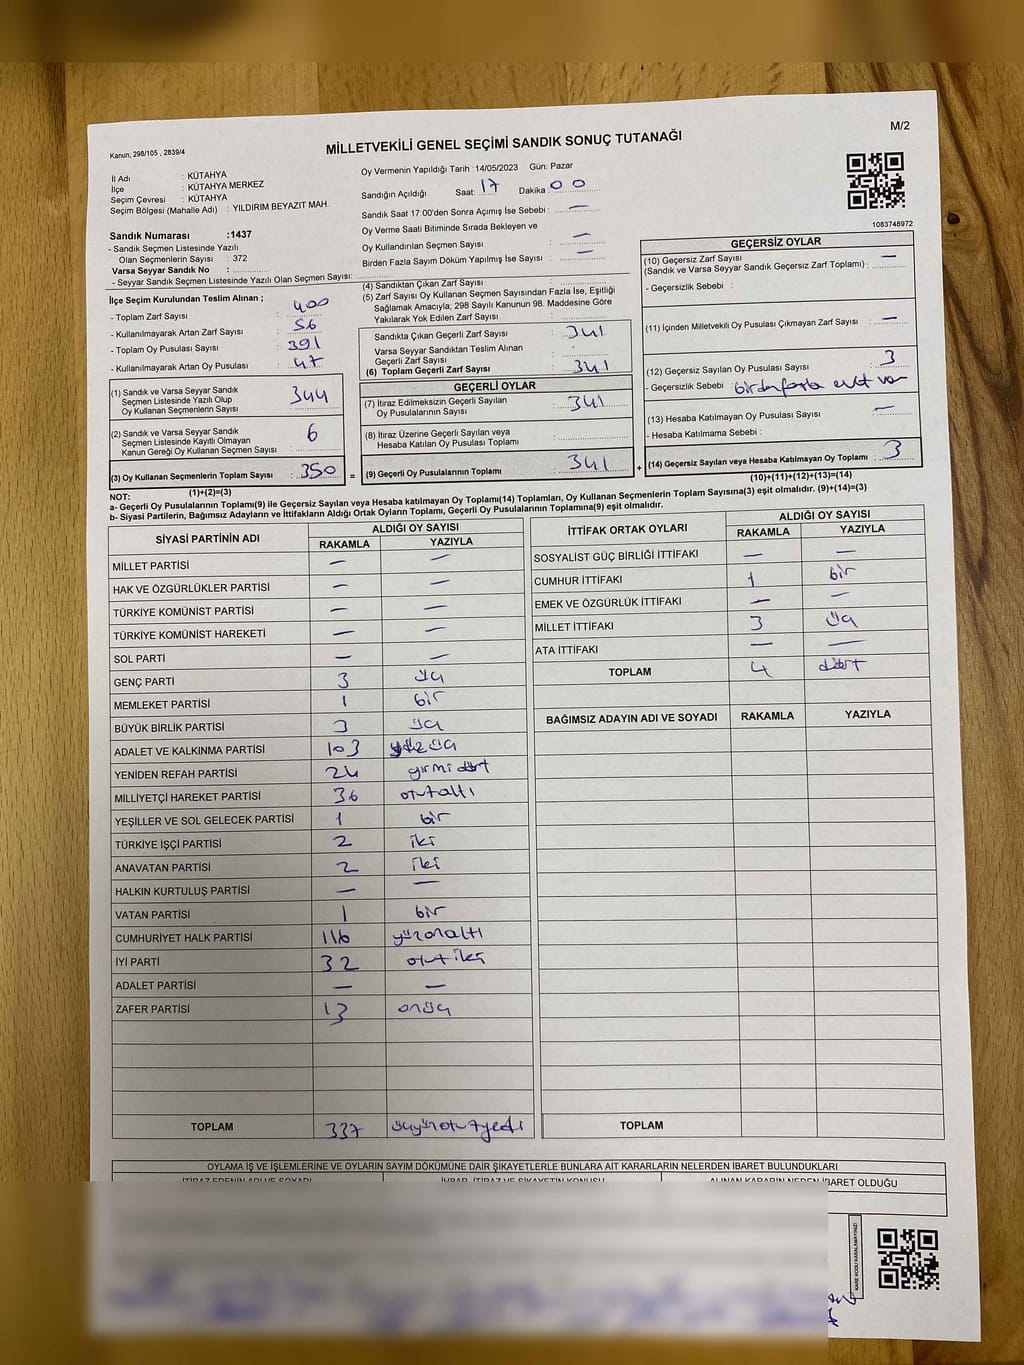 M/2
Kanun; 298/105 , 2839/4
MİLLETVEKİLİ GENEL SEÇİMİ SANDIK SONUÇ TUTANAĞI
İl Adı : KÜTAHYA
İlçe : KÜTAHYA MERKEZ
Seçim Çevresi : KÜTAHYA
Seçim Bölgesi (Mahalle Adı) : YILDIRIM BEYAZIT MAH.
Sandık Numarası :1437
- Sandık Seçmen Listesinde Yazılı
Olan Seçmenlerin Sayısı : 372
Varsa Seyyar Sandık No :
- Seyyar Sandık Seçmen Listesinde Yazılı Olan Seçmen Sayısı:
Oy Vermenin Yapıldığı Tarih : 14/05/2023 Gün: Pazar
Sandığın Açıldığı Saat: 17 Dakika: 00
Sandık Saat 17:00'den Sonra Açımış İse Sebebi : —
Oy Verme Saati Bitiminde Sırada Bekleyen ve
Oy Kullandırılan Seçmen Sayısı —
Birden Fazla Sayım Döküm Yapılmış İse Sayısı : —
1083748972
İlçe Seçim Kurulundan Teslim Alınan ;
- Toplam Zarf Sayısı : 400
- Kullanılmayarak Artan Zarf Sayısı : 56
- Toplam Oy Pusulası Sayısı : 391
- Kullanılmayarak Artan Oy Pusulası : 47
(1) Sandık ve Varsa Seyyar Sandık
Seçmen Listesinde Yazılı Olup
Oy Kullanan Seçmenlerin Sayısı : 344
(2) Sandık ve Varsa Seyyar Sandık
Seçmen Listesinde Kayıtlı Olmayan
Kanun Gereği Oy Kullanan Seçmen Sayısı : 6
(3) Oy Kullanan Seçmenlerin Toplam Sayısı : 350
(1)+(2)=(3)
(4) Sandıktan Çıkan Zarf Sayısı :
(5) Zarf Sayısı Oy Kullanan Seçmen Sayısından Fazla İse, Eşitliği
Sağlamak Amacıyla; 298 Sayılı Kanunun 98. Maddesine Göre
Yakılarak Yok Edilen Zarf Sayısı :
Sandıkta Çıkan Geçerli Zarf Sayısı : 341
Varsa Seyyar Sandıktan Teslim Alınan
Geçerli Zarf Sayısı :
(6) Toplam Geçerli Zarf Sayısı : 341
GEÇERLİ OYLAR
(7) İtiraz Edilmeksizin Geçerli Sayılan
Oy Pusulalarının Sayısı : 341
(8) İtiraz Üzerine Geçerli Sayılan veya
Hesaba Katılan Oy Pusulası Toplamı :
= (9) Geçerli Oy Pusulalarının Toplamı : 341
GEÇERSİZ OYLAR
(10) Geçersiz Zarf Sayısı —
(Sandık ve Varsa Seyyar Sandık Geçersiz Zarf Toplamı) :
- Geçersizlik Sebebi :
(11) İçinden Milletvekili Oy Pusulası Çıkmayan Zarf Sayısı : —
(12) Geçersiz Sayılan Oy Pusulası Sayısı : 3
- Geçersizlik Sebebi : birden fazla evet var
(13) Hesaba Katılmayan Oy Pusulası Sayısı : —
- Hesaba Katılmama Sebebi :
+ (14) Geçersiz Sayılan veya Hesaba Katılmayan Oy Toplamı : 3
(10)+(11)+(12)+(13)=(14)
NOT:
a- Geçerli Oy Pusulalarının Toplamı(9) ile Geçersiz Sayılan veya Hesaba katılmayan Oy Toplamı(14) Toplamları, Oy Kullanan Seçmenlerin Toplam Sayısına(3) eşit olmalıdır. (9)+(14)=(3)
b- Siyasi Partilerin, Bağımsız Adayların ve İttifakların Aldığı Ortak Oyların Toplamı, Geçerli Oy Pusulalarının Toplamına(9) eşit olmalıdır.
SİYASİ PARTİNİN ADI ALDIĞI OY SAYISI
RAKAMLA YAZIYLA
MİLLET PARTİSİ — —
HAK VE ÖZGÜRLÜKLER PARTİSİ — —
TÜRKİYE KOMÜNİST PARTİSİ — —
TÜRKİYE KOMÜNİST HAREKETİ — —
SOL PARTİ — —
GENÇ PARTİ 3 üç
MEMLEKET PARTİSİ 1 bir
BÜYÜK BİRLİK PARTİSİ 3 üç
ADALET VE KALKINMA PARTİSİ 103 yüzüç
YENİDEN REFAH PARTİSİ 24 yirmidört
MİLLİYETÇİ HAREKET PARTİSİ 36 otuzaltı
YEŞİLLER VE SOL GELECEK PARTİSİ 1 bir
TÜRKİYE İŞÇİ PARTİSİ 2 iki
ANAVATAN PARTİSİ 2 iki
HALKIN KURTULUŞ PARTİSİ — —
VATAN PARTİSİ 1 bir
CUMHURİYET HALK PARTİSİ 116 yüzonaltı
İYİ PARTİ 32 otuziki
ADALET PARTİSİ — —
ZAFER PARTİSİ 13 onüç
TOPLAM 337 üçyüzotuzyedi
İTTİFAK ORTAK OYLARI ALDIĞI OY SAYISI
RAKAMLA YAZIYLA
SOSYALİST GÜÇ BİRLİĞİ İTTİFAKI — —
CUMHUR İTTİFAKI 1 bir
EMEK VE ÖZGÜRLÜK İTTİFAKI — —
MİLLET İTTİFAKI 3 üç
ATA İTTİFAKI — —
TOPLAM 4 dört
BAĞIMSIZ ADAYIN ADI VE SOYADI RAKAMLA YAZIYLA
TOPLAM
OYLAMA İŞ VE İŞLEMLERİNE VE OYLARIN SAYIM DÖKÜMÜNE DAİR ŞİKAYETLERLE BUNLARA AİT KARARLARIN NELERDEN İBARET BULUNDUKLARI
İTİRAZ EDENİN ADI VE SOYADI İHBAR, İTİRAZ VE ŞİKAYETİN KONUSU ALINAN KARARIN NEDEN İBARET OLDUĞU
KARE KODU KARALAMAYINIZ!